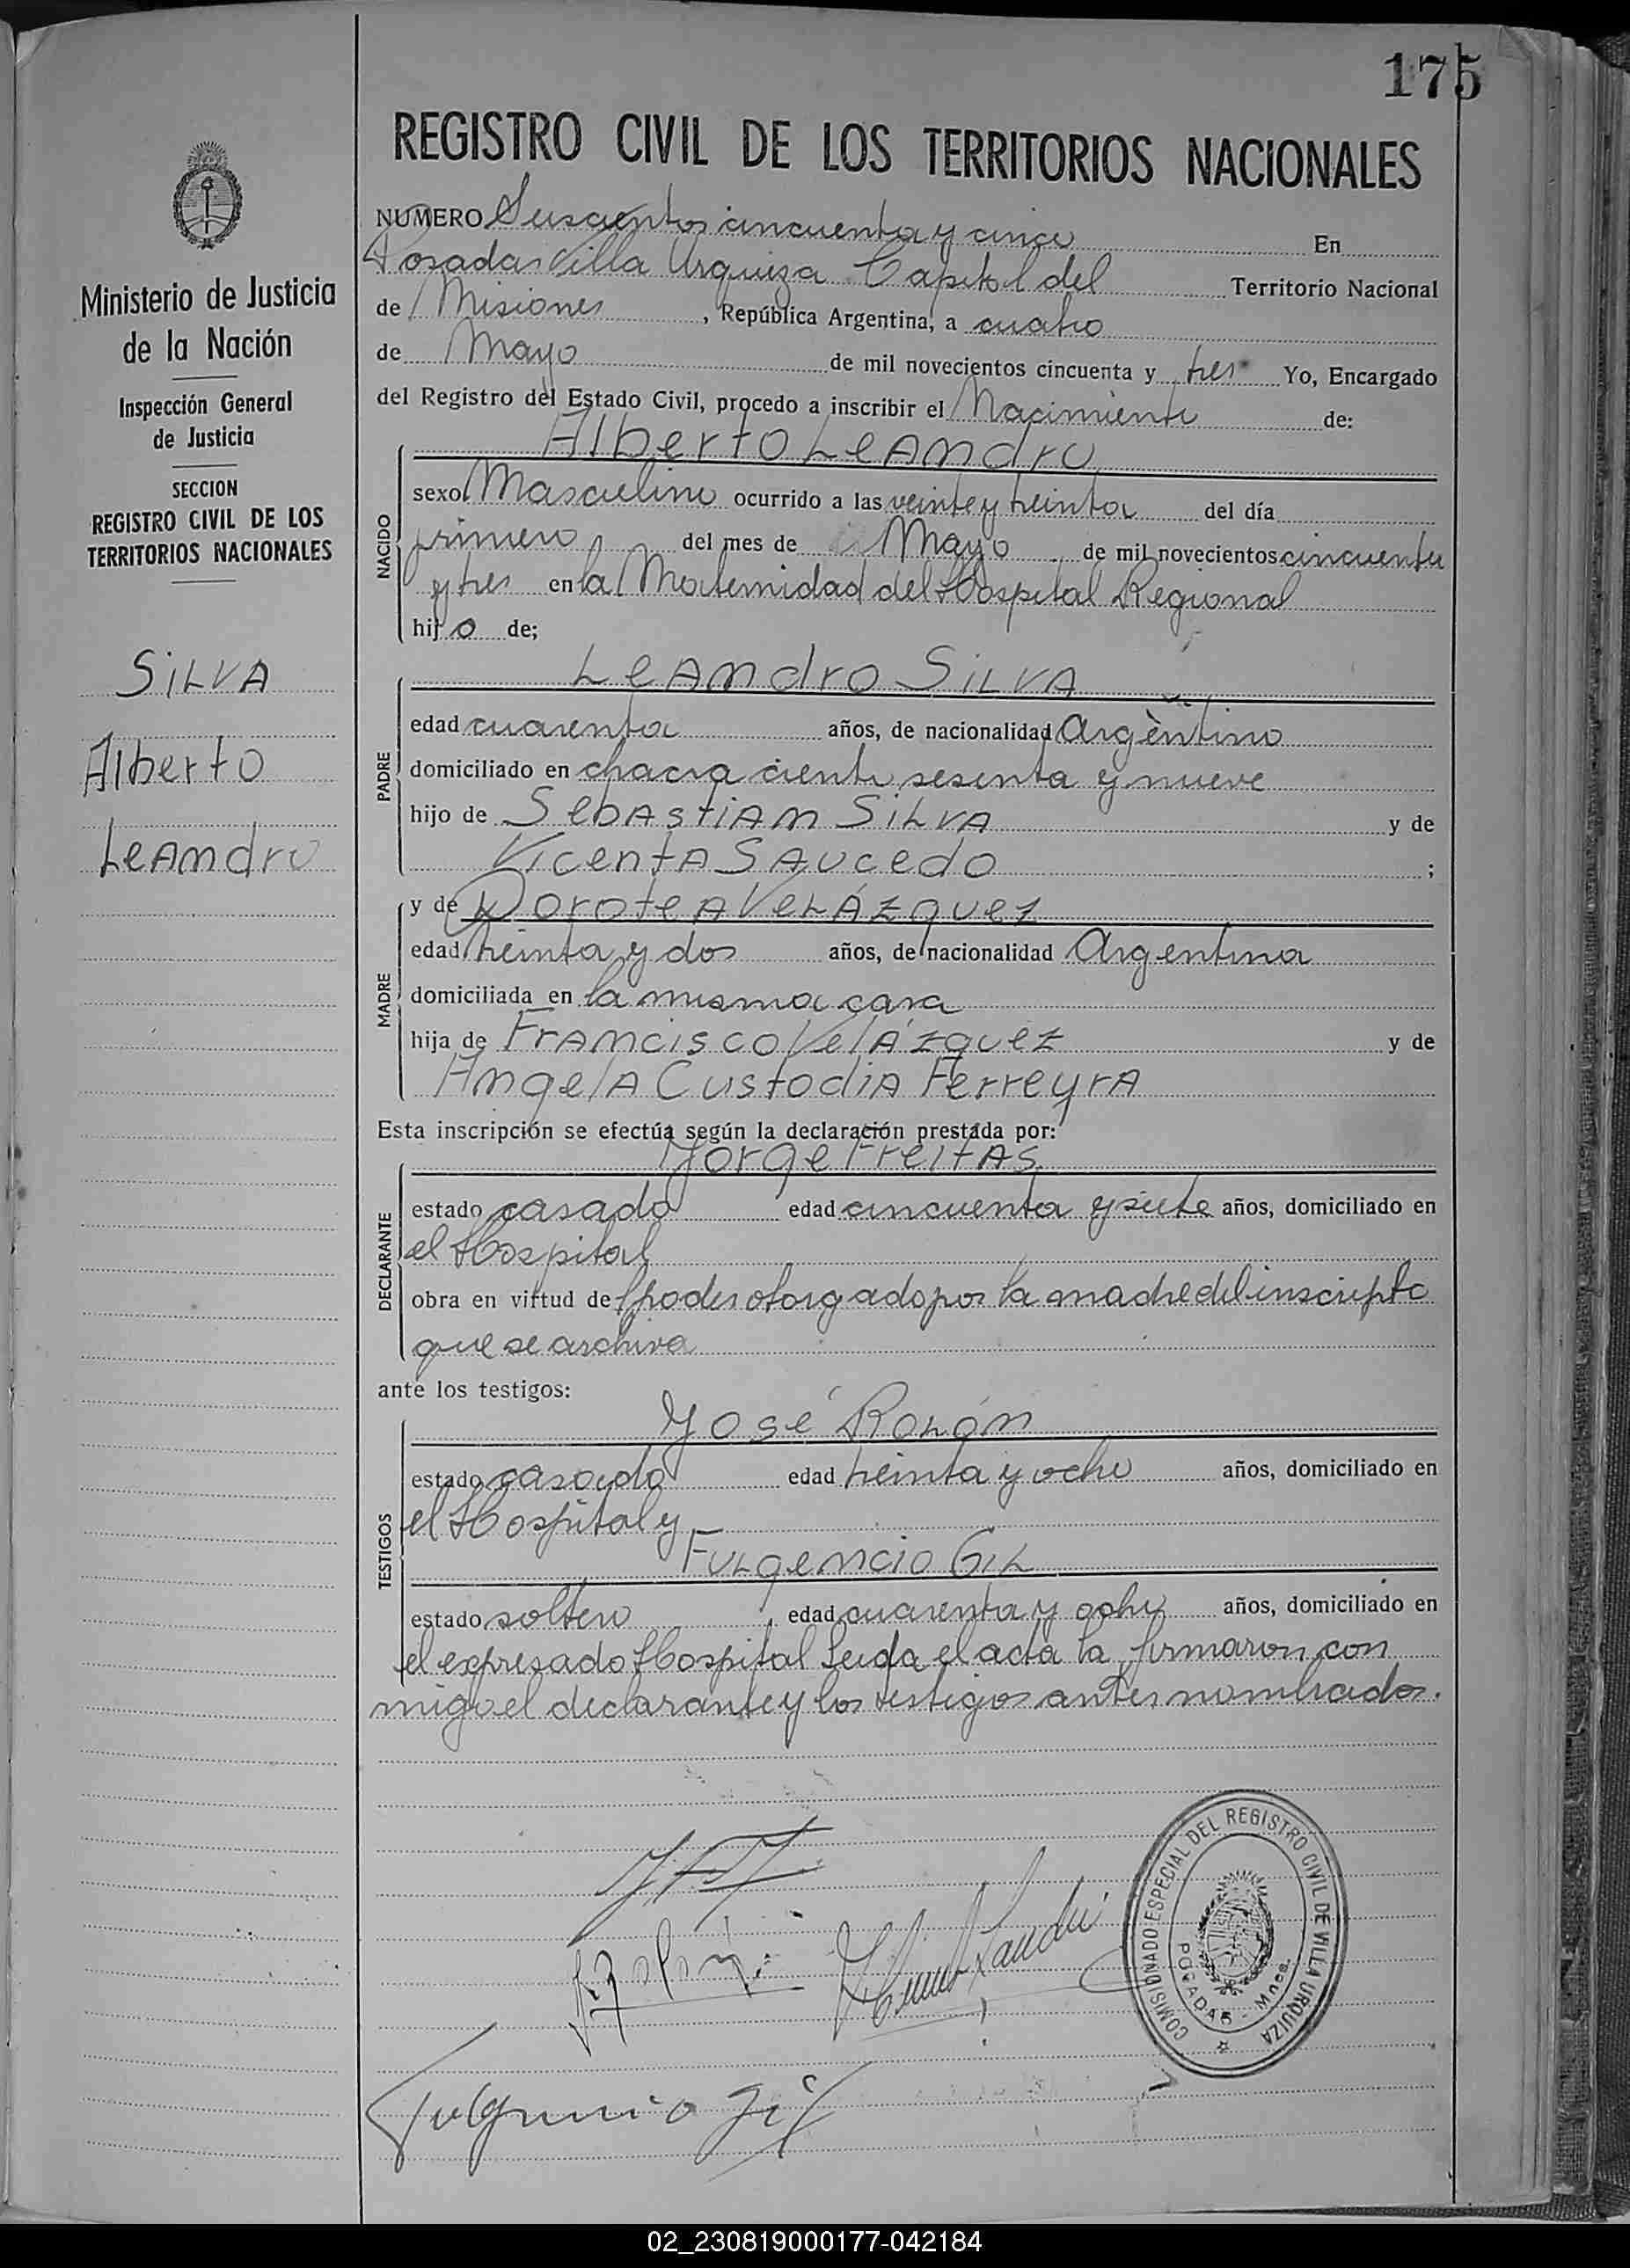 175
REGISTRO CIVIL DE LOS TERRITORIOS NACIONALES
Ministerio de Justicia
de la Nación
Inspección General
de Justicia
SECCION
REGISTRO CIVIL DE LOS
TERRITORIOS NACIONALES
SiLVA
Alberto
LeAndro
NUMERO cincuenta y cinco En
Posadas Villa Urquiza Capital del Territorio Nacional
de Misiones, República Argentina, a cuatro
de Mayo de mil novecientos cincuenta y tres Yo, Encargado
del Registro del Estado Civil, procedo a inscribir el Nacimiento de:
Alberto LeAndro
NACIDO
sexo Masculino ocurrido a las veinte y treinta del día
primero del mes de Mayo de mil novecientos cincuenta
y tres en la Maternidad del Hospital Regional
hijo de;
LeAndro SiLVA
PADRE
edad cuarenta años, de nacionalidad Argentino
domiciliado en chacra ciento sesenta y nueve
hijo de SebAstiAn SiLVA y de
VicentA SAucedo ;
y de DoroteA VeLÁzquez
MADRE
edad treinta y dos años, de nacionalidad Argentina
domiciliada en la misma casa
hija de FrAncisco VelÁzquez y de
AngelA CustodiA FerreyrA
Esta inscripción se efectúa según la declaración prestada por:
Jorge FreitAs
DECLARANTE
estado casado edad cincuenta y siete años, domiciliado en
el Hospital
obra en virtud de poder otorgado por la madre del inscripto
que se archiva
ante los testigos:
José RoLón
TESTIGOS
estado casado edad treinta y ocho años, domiciliado en
el Hospital y
FuLgencio GiL
estado soltero edad cuarenta y ocho años, domiciliado en
el expresado Hospital Leida el acta la firmaron con
migo el declarante y los testigos antes nombrados.
COMISIONADO ESPECIAL DEL REGISTRO CIVIL DE VILLA URQUIZA
POSADAS - Mnes.
Fulgencio Gil
02_230819000177-042184